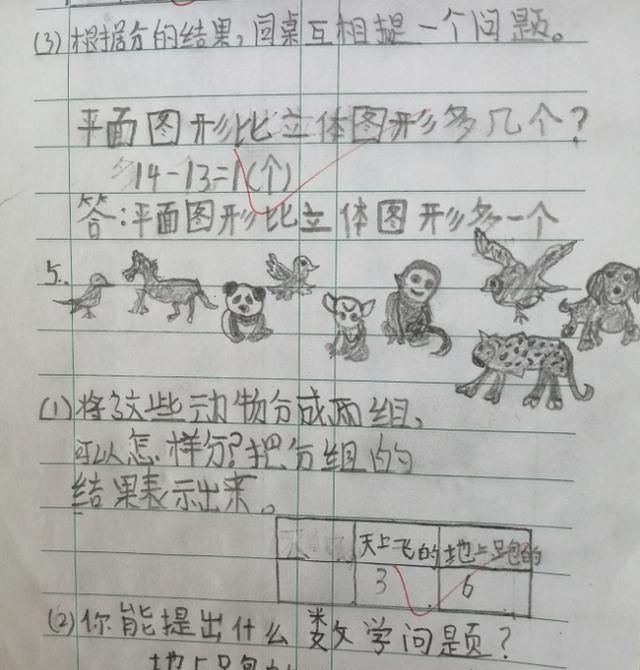 (3)根据分的结果,同桌互相提一个问题。
平面图形比立体图形多几个?
14-13=1(个)
答:平面图形比立体图形多一个
5.
(1)将这些动物分成两组,
可以怎样分?把分组的
结果表示出来。
天上飞的 地上跑的
3 6
(2)你能提出什么数学问题?
地上跑的